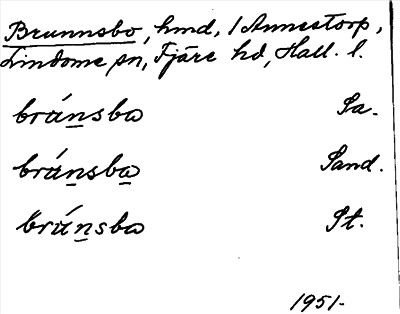 Brunnsbo, hmd, 1 Annestorp,
Lindome sn, Fjäre hd, Hall. l.
brúnsba Sa.
brúnsba Sand.
brúnsba St.
1951.